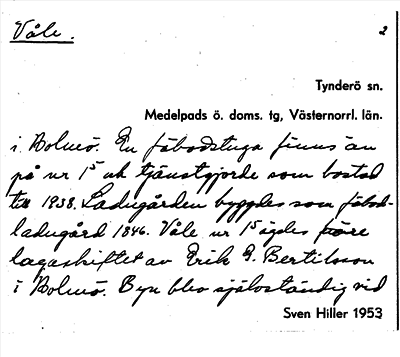 Våle.
2
Tynderö sn.
Medelpads ö. doms. tg, Västernorrl. län.
i Bolmö. En fäbodstuga finns än
på nr 1⁵ och tjänstgjorde som bostad
till 1938. Ladugården byggdes som fäbod-
ladugård 1846. Våle nr 1⁵ ägdes före
lagaskiftet av Erik G. Bertilsson
i Bolmö. Byn blev självständig vid
Sven Hiller 1953